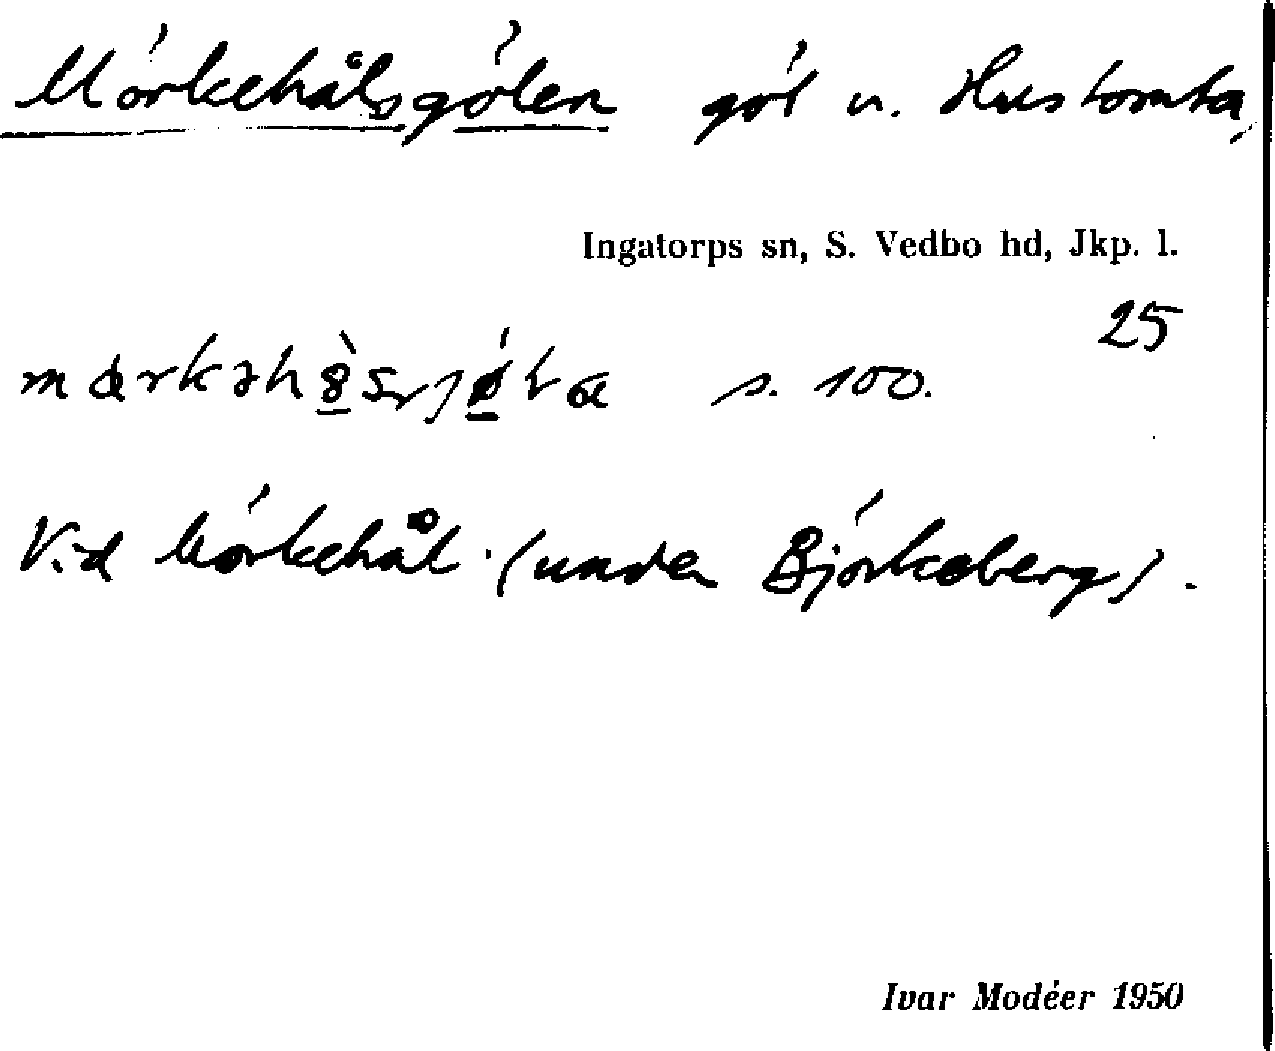 Mörkehålsgölen göl u. Hustomta,
Ingatorps sn, S. Vedbo hd, Jkp. l.
25
s. 100.
Vid Mörkehål (under Björkeberg).
Ivar Modéer 1950